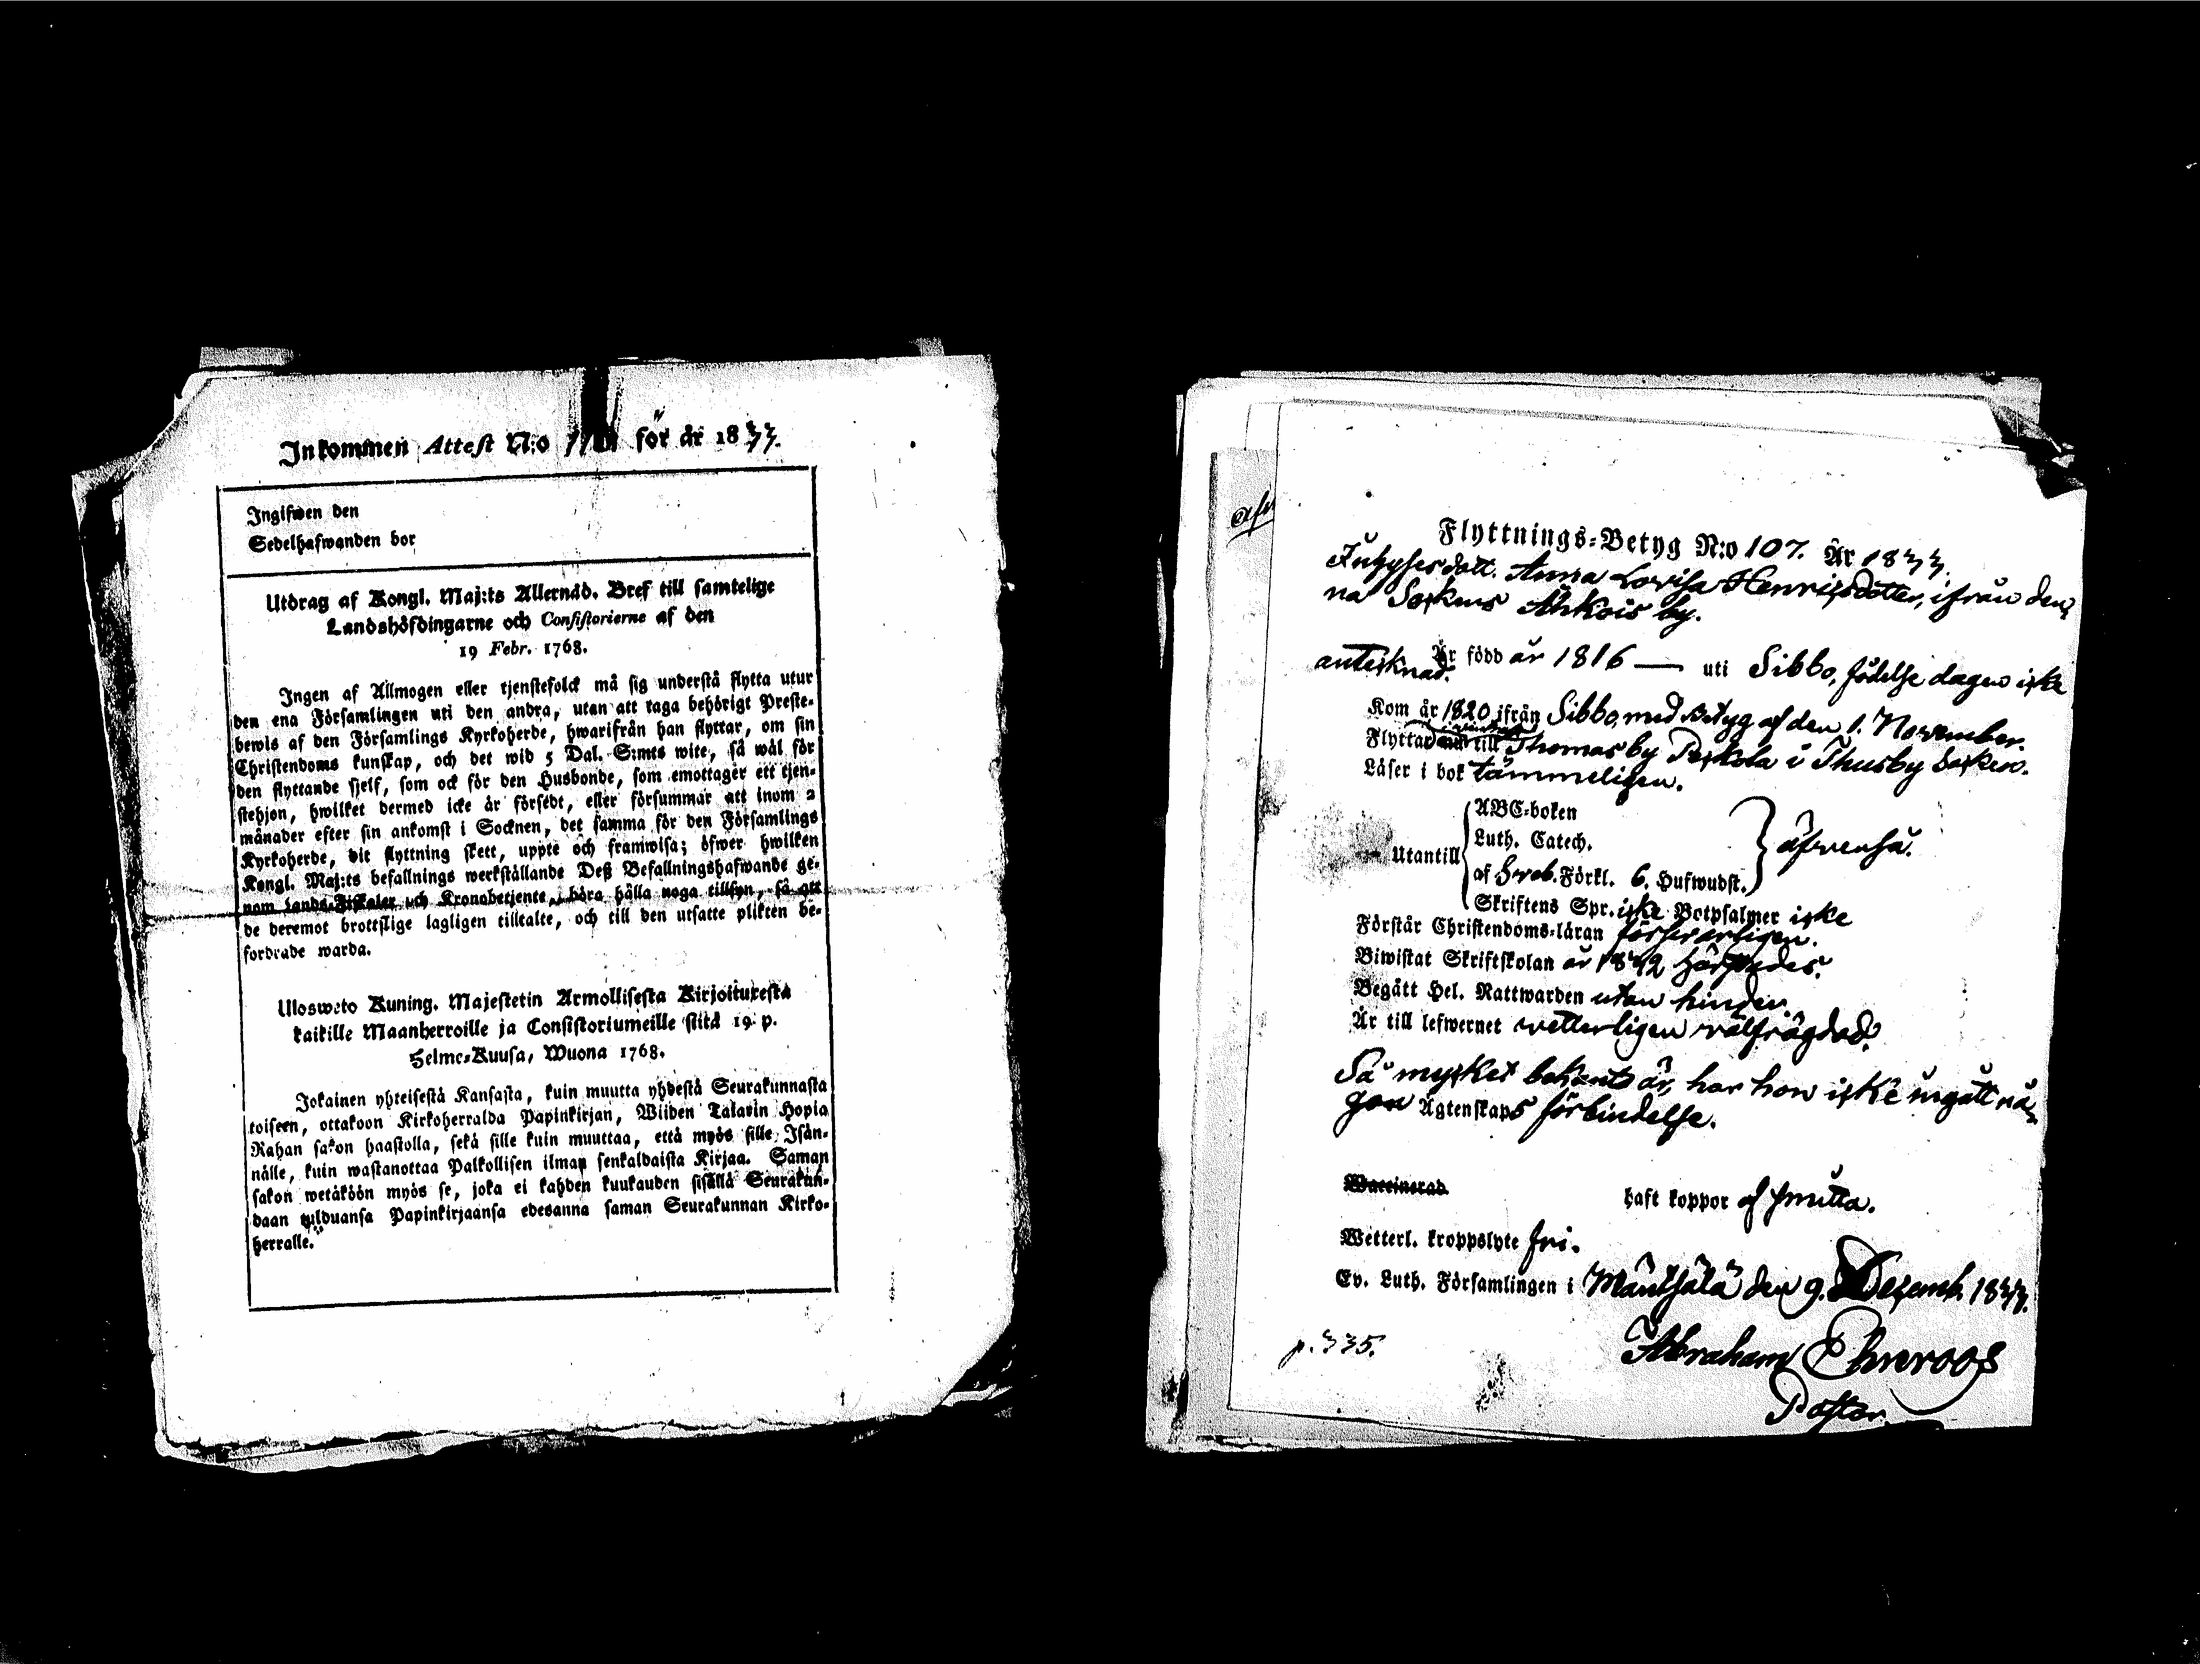 Inkommen Attest N:o för år 1833.
Ingifwen den
Sedelhafwanden bor
Utdrag af Kongl. Maj:ts Allernåd. Bref till samtelige
Landshöfdingarne och Consistorierne af den
19 Febr. 1768.
Ingen af Allmogen eller tjenstefolck må sig understå flytta utur
den ena Församlingen uti den andra, utan att taga behörigt Preste-
bewis af den Församlings Kyrkoherde, hwarifrån han flyttar, om sin
Christendoms kunskap, och det wid 5 Dal. S:mts wite, så wäl för
den flyttande sjelf, som ock för den Husbonde, som emottager ett tjen-
stehjon, hwilket dermed icke är försedt, eller försummar att inom 2
månader efter sin ankomst i Socknen, det samma för den Församlings
Kyrkoherde, dit flyttning skett, uppte och framwisa; öfwer hwilken
Kongl. Maj:ts befallnings werkställande Deß Befallningshafwande ge-
nom Lands-Fiskaler och Kronobetjente, böra hålla noga tillsyn, så att
de deremot brottslige lagligen tilltalte, och till den utsatte plikten be-
fordrade warda.
Ulosweto Kuning. Majestetin Armollisesta Kirjoituresta
kaikille Maanherroille ja Consistoriumeille siitä 19 p.
Helme-Kuusa, Wuona 1768.
Jokainen yhteisestä Kansasta, kuin muutta yhdestä Seurakunnasta
toiseen, ottakoon Kirkoherralda Papinkirjan, Wiiden Talarin Hopia
Rahan sakon haastolla, sekä sille kuin muuttaa, että myös sille Isän-
nälle, kuin wastanottaa Palkollisen ilman senkaldaista Kirjaa. Saman
sakon wetäköön myös se, joka ei kahden kuukauden sisällä Seurakun-
daan tulduansa Papinkirjaansa edesanna saman Seurakunnan Kirko-
herralle.
Flyttnings-Betyg N:o 107. År 1833.
Anna Lovisa Henricsdotter, ifrån den-
na Sockens Ahkois by.
Är född år 1816 — uti Sibbo, födelse dagen icke
antecknad.
Kom år 1820 ifrån Sibbo, med Betyg af den 1. November.
Flyttar till Thomasby Peckola i Thusby Socken.
Läser i bok tämmeligen.
Utantill
ABC-boken
Luth. Catech.
af Sveb. Förkl. 6. Hufwudst.
äfvenså.
Skriftens Spr. icke Botpsalmer icke
Förstår Christendoms-läran försvarligen.
Biwistat Skriftskolan år 1832 härstädes.
Begått Hel. Nattwarden utan hinder.
Är till lefwernet vetterligen välfrägdad.
Så mycket bekant är, har hon icke ingått nå-
gon Ägtenskaps förbindelse.
Waccinerad haft koppor af smitta.
Wetterl. kroppslyte fri.
Ev. Luth. Församlingen i Mäntsälä den 9. Decemb. 1833.
p. 335.
Abraham Ehnroos
Pastor.